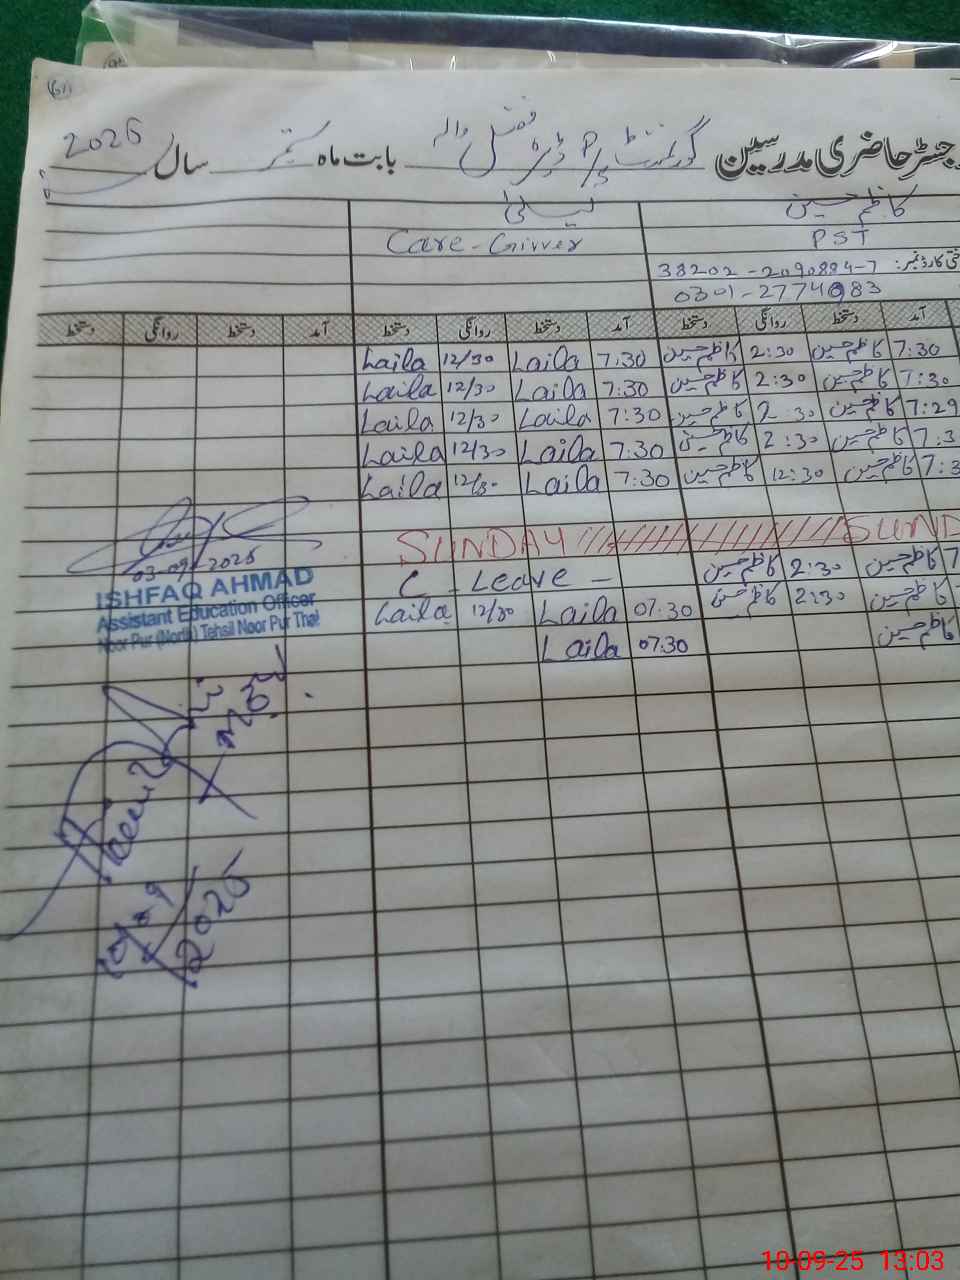 61
رجسٹر حاضری مدرسین گورنمنٹ P/S ڈیرہ فضل والہ بابت ماہ ستمبر سال 2025
کاظم حسین لیلیٰ
PST Care-Givver
شناختی کارڈ نمبر: 38202-2090884-7
0301-2774083
آمد دستخط روانگی دستخط آمد دستخط روانگی دستخط آمد دستخط روانگی دستخط
7:30 کاظم حسین 2:30 کاظم حسین 7:30 Laila 12/30 Laila
7:30 کاظم حسین 2:30 کاظم حسین 7:30 Laila 12/30 Laila
7:29 کاظم حسین 2:30 کاظم حسین 7:30 Laila 12/30 Laila
7:3 کاظم حسین 2:30 کاظم حسین 7:30 Laila 12/30 Laila
7:3 کاظم حسین 12:30 کاظم حسین 7:30 Laila 12/30 Laila
SUNDAY SUND
7 کاظم حسین 2:30 کاظم حسین C - Leave -
کاظم حسین 2:30 کاظم حسین 07:30 Laila 12/30 Laila
کاظم حسین 07:30 Laila
03-09-2025
ISHFAQ AHMAD
Assistant Education Officer
Noor Pur (North) Tehsil Noor Pur Thal
2025
10-09-25 13:03